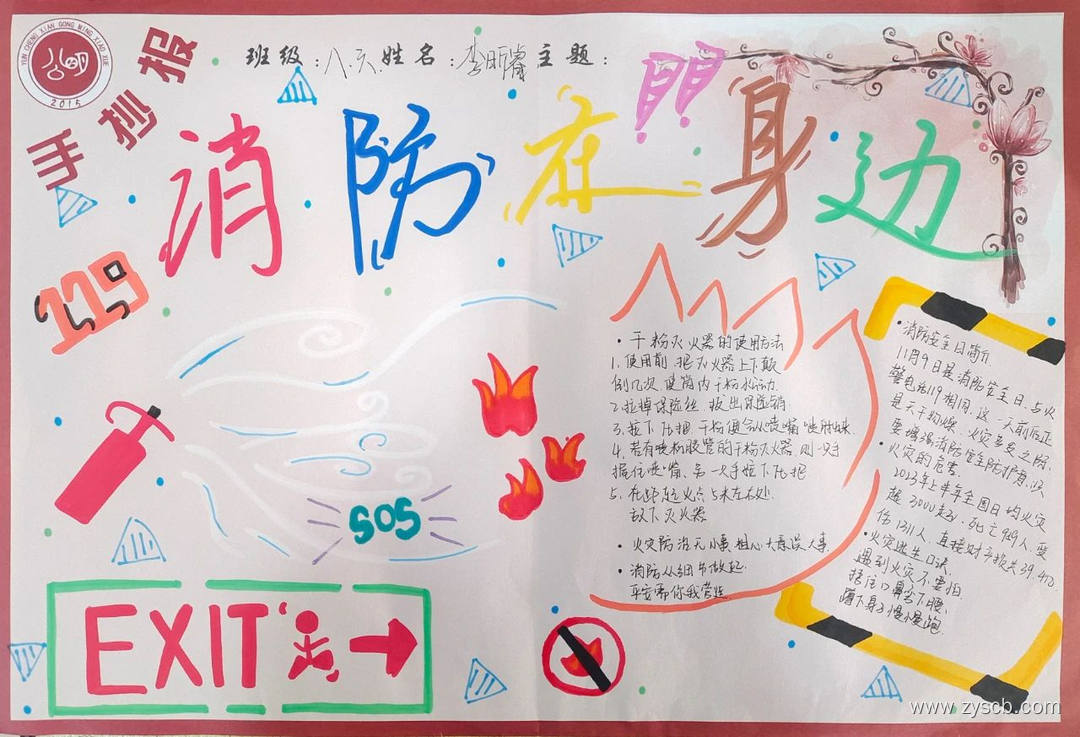 YUN CHENG XIAN GONG MING XIAO XUE
2015
手抄报
班级：八六 姓名：李昕睿 主题：
消防在身边
119
SOS
EXIT
•干粉灭火器的使用方法
1.使用前,把灭火器上下颠
倒几次,使筒内干粉松动.
2.拉掉保险丝,拔出保险销
3.按下压把,干粉便会从喷嘴喷射出来
4.若有喷粉胶管的干粉灭火器,则一只手
握住喷嘴,另一只手按下压把
5.在距起火点5米左右处.
放下灭火器
•火灾防治无小事,粗心大意误人事.
•消防从细节做起.
平安帮你我营造.
•消防安全日简介
11月9日是消防安全日.与火
警电话119相同.这一天前后正
是天干物燥、火灾多发之际.
要增强消防安全防护意识
•火灾的危害.
2023年上半年全国日均火灾
超3000起,死亡959人,受
伤1311人,直接财产损失39.4亿
•火灾逃生口诀.
遇到火灾不要怕.
捂住口鼻弯下腰.
蹲下身子慢慢跑.
www.zyscb.com